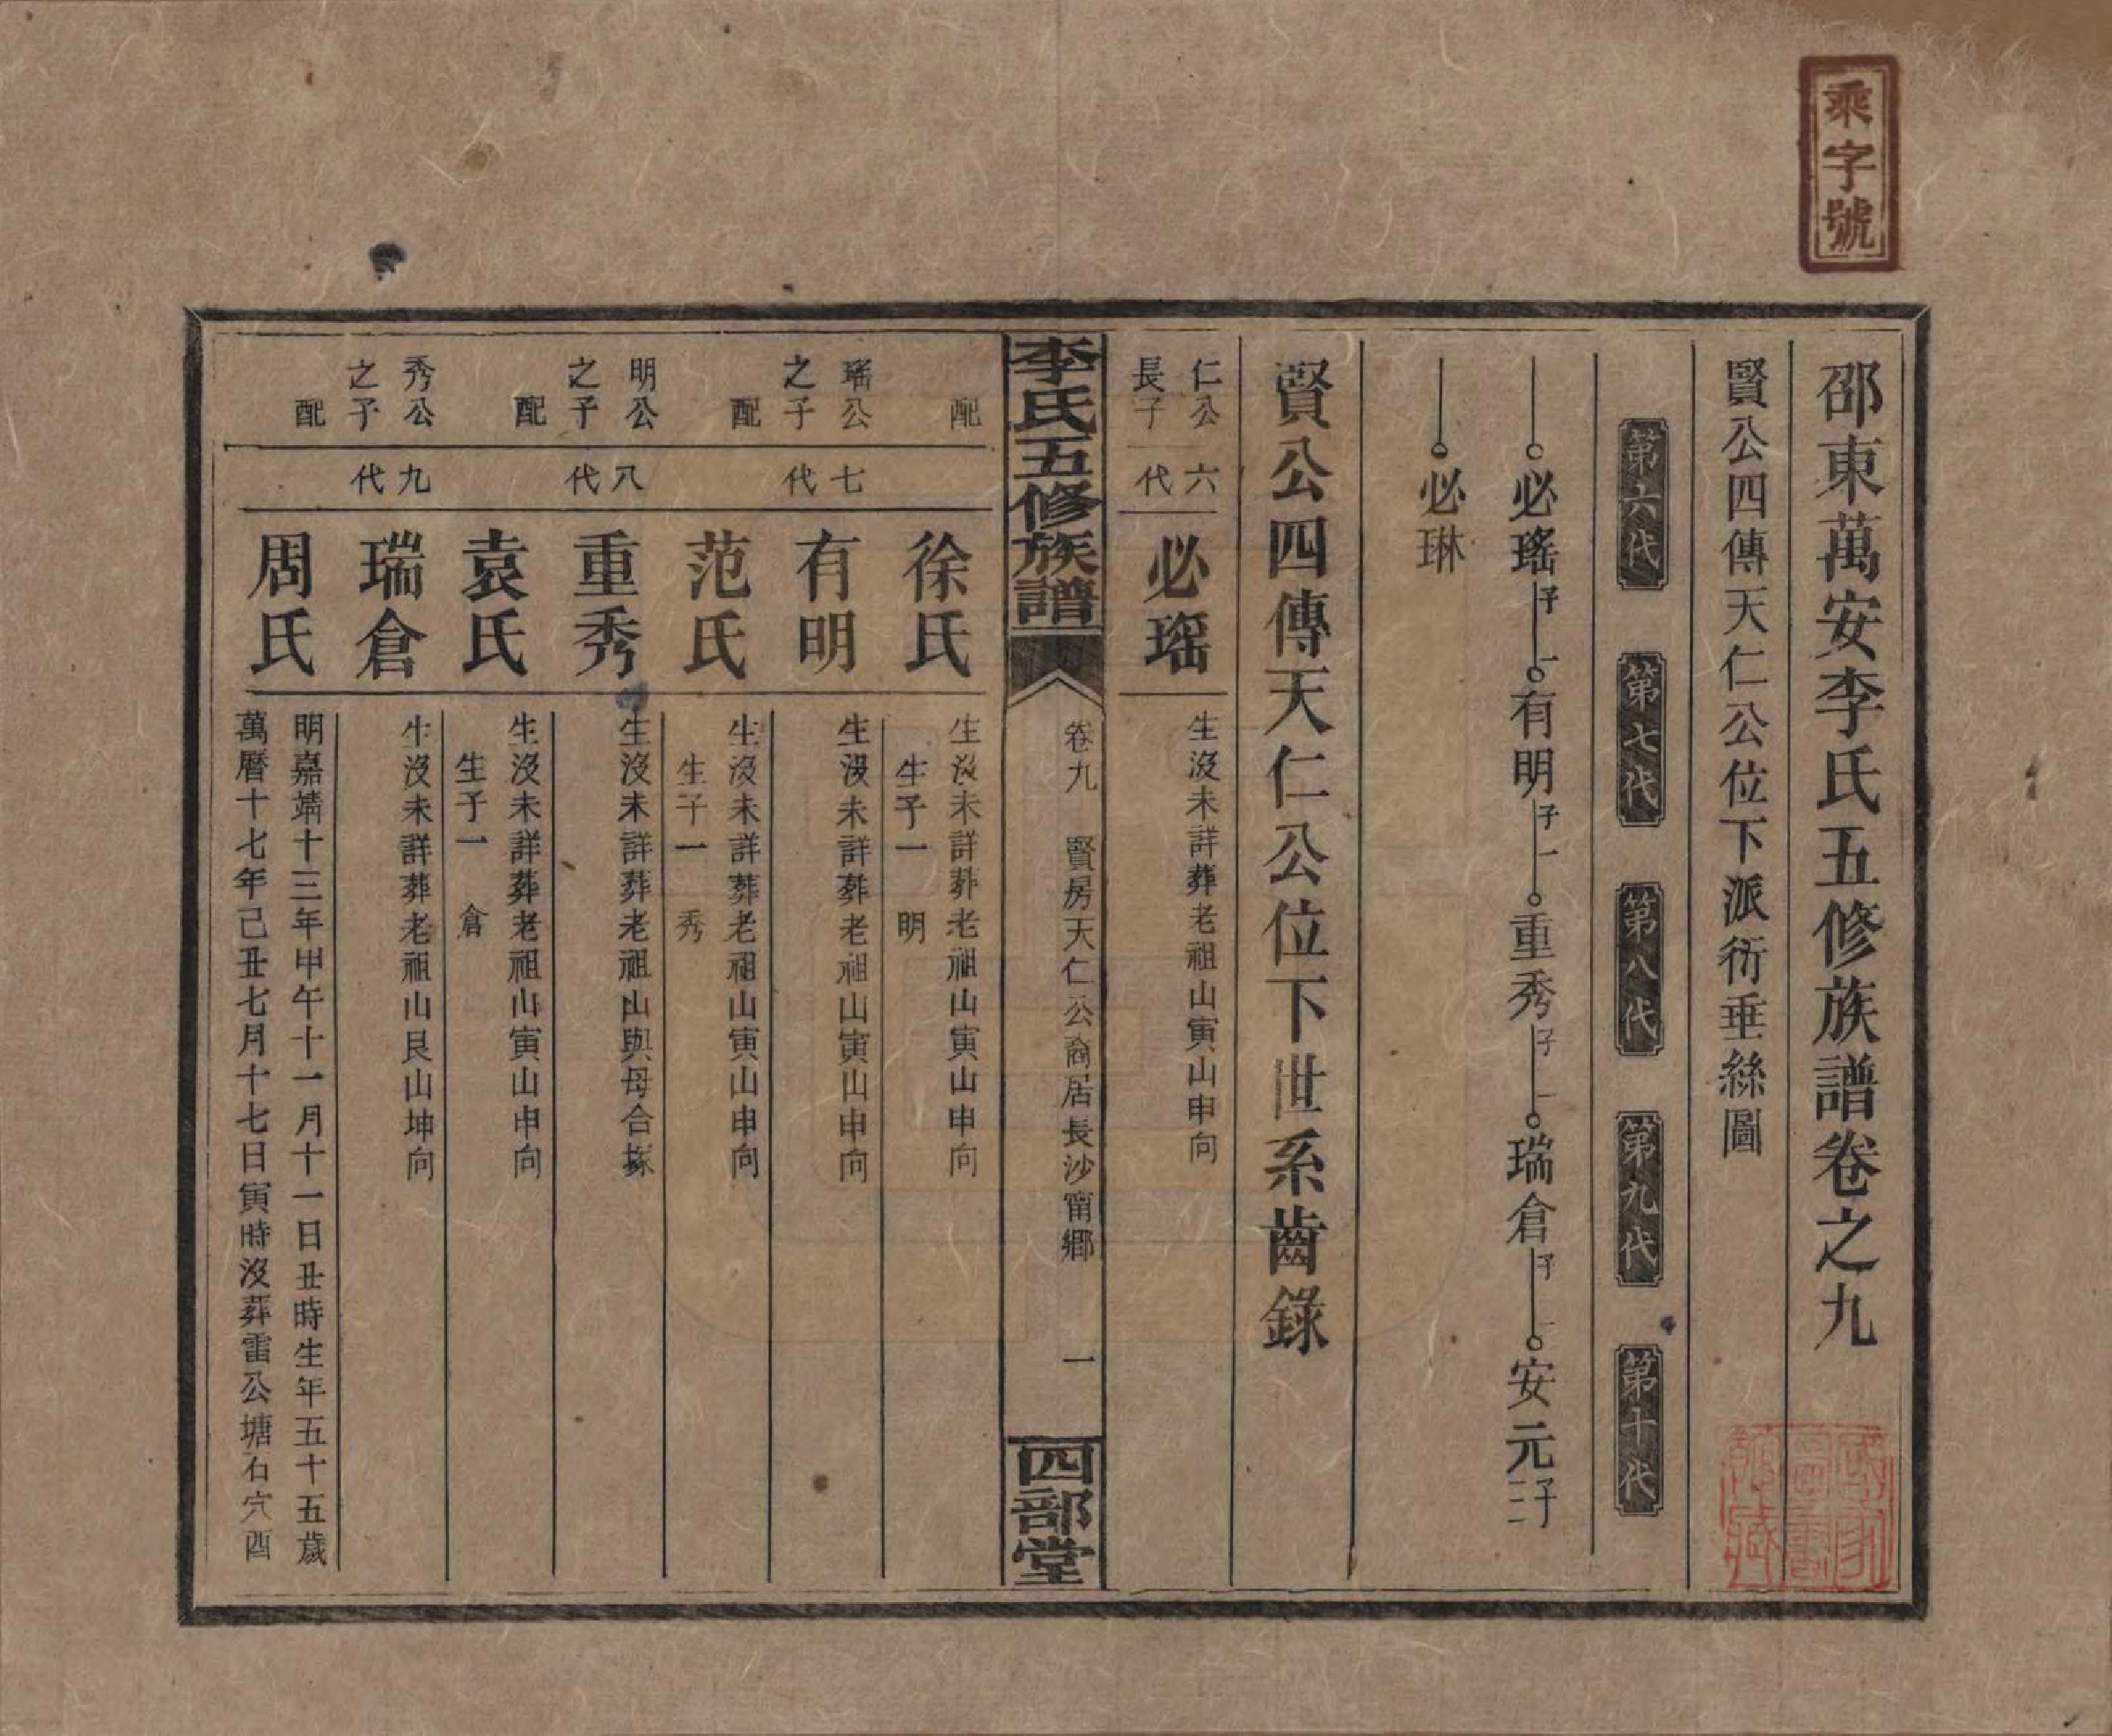 乘字號
邵東萬安李氏五修族譜卷之九
賢公四傳天仁公位下派衍垂絲圖
第六代 第七代 第八代 第九代 第十代
必瑤 子一 有明 子一 重秀 子一 瑞倉 子一 安元 子二
必琳
賢公四傳天仁公位下世系齒錄
仁公長子 六代 必瑤 生沒未詳葬老祖山寅山申向
李氏五修族譜 卷九 賢房天仁公裔居長沙甯鄉 一 四部堂
配 徐氏 生沒未詳葬老祖山寅山申向
生子一 明
瑤公之子 七代 有明 生沒未詳葬老祖山寅山申向
配 范氏 生沒未詳葬老祖山寅山申向
生子一 秀
明公之子 八代 重秀 生沒未詳葬老祖山與母合塚
配 袁氏 生沒未詳葬老祖山寅山申向
生子一 倉
秀公之子 九代 瑞倉 生沒未詳葬老祖山艮山坤向
配 周氏 明嘉靖十三年甲午十一月十一日丑時生年五十五歲
萬曆十七年己丑七月十七日寅時沒葬雷公塘石穴酉